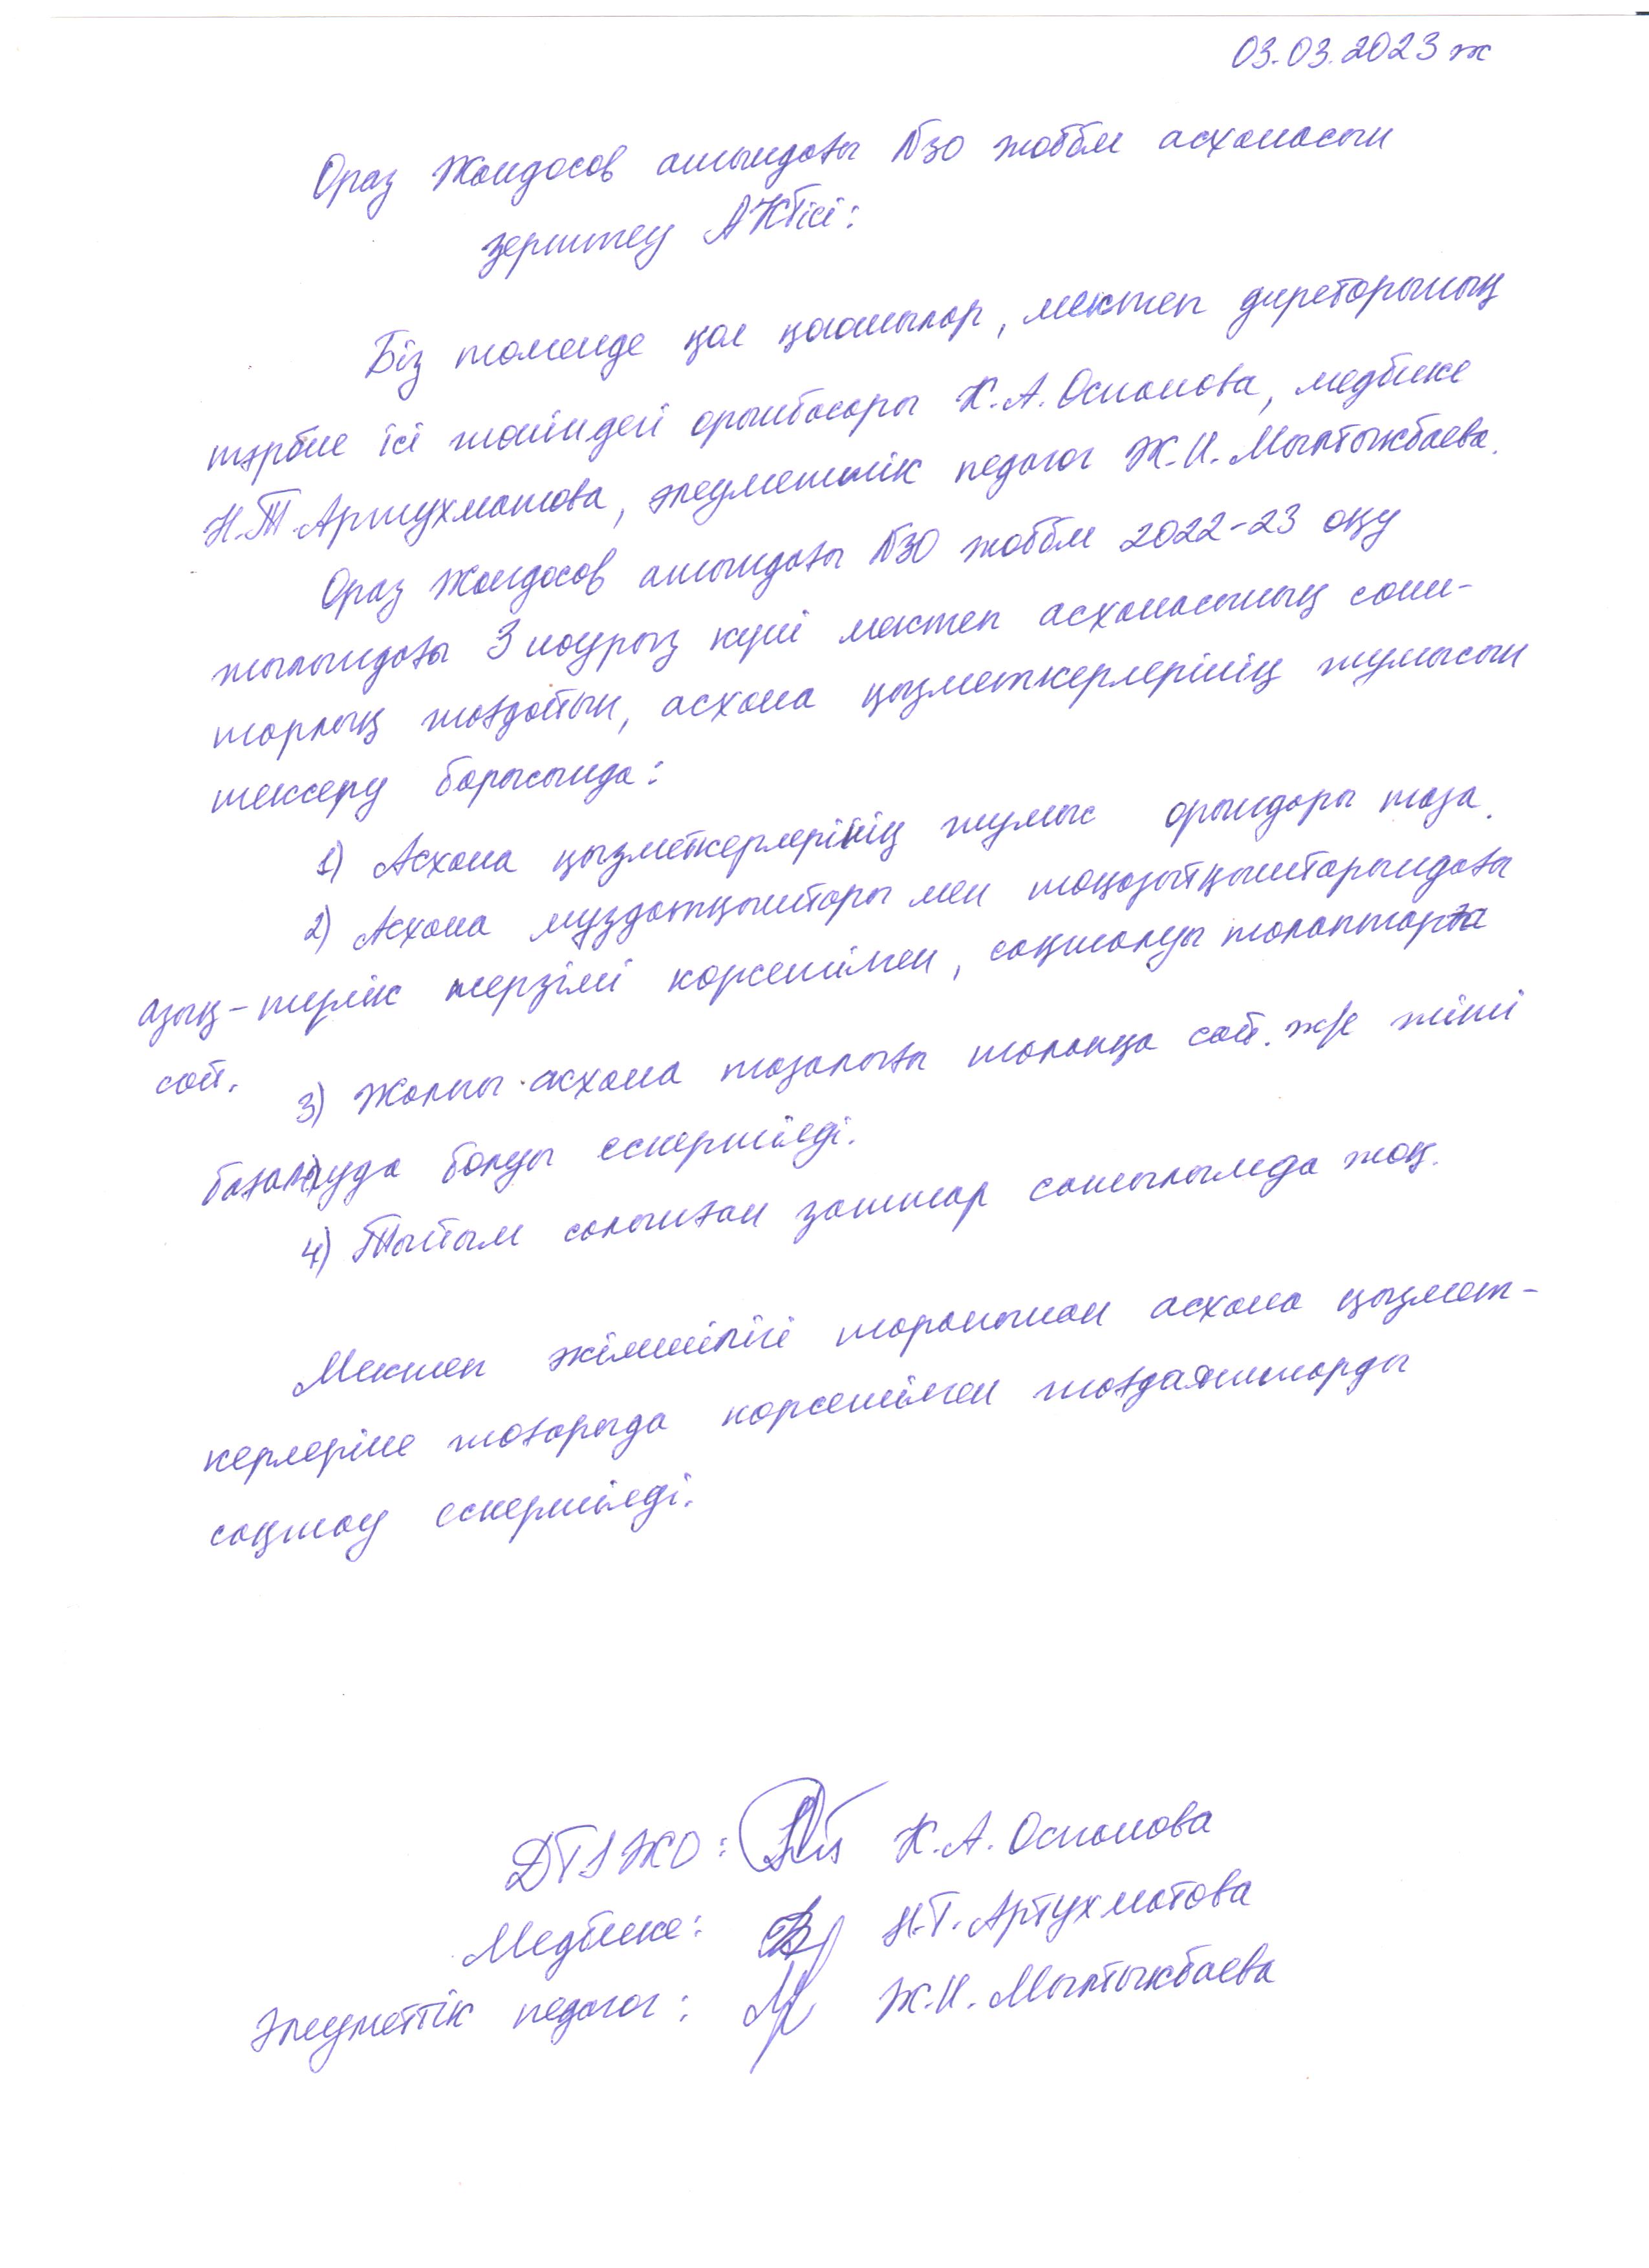 03.03.2023 ж
Ораз Жандосов атындағы №30 жоббм асханасын
зерттеу АКТісі:
Біз төменде қол қоюшылар, мектеп диреторының
тәрбие ісі жөніндегі орынбасары К.А. Оспанова, медбике
Н.Т. Артухматова, әлеуметтік педагог Ж.И. Мылтыкбаева.
Ораз Жандосов атындағы №30 жоббм 2022-23 оқу
жылындағы 3 наурыз күні мектеп асханасының сани-
тарлық жағдайын, асхана қызметкерлерінің жұмысын
тексеру барысында:
1) Асхана қызметкерлерінің жұмыс орындары таза.
2) Асхана мұздатқыштары мен тоңазытқыштарындағы
азық-түлік мерзімі көрсетілген, сақталуы талаптарға
сай.
3) Жалпы асхана тазалығы талапқа сай. Және жіті
бақылауда болуы ескертілді.
4) Тыйым салынған заттар сатылымда жоқ.
Мектеп әкімшілігі тарапынан асхана қызмет-
керлеріне жоғарыда көрсетілген жағдаяттарды
сақтау ескертілді.
ДТІЖО: К.А. Оспанова
Медбике: Н.Т. Артухматова
Әлеуметтік педагог: Ж.И. Мылтыкбаева